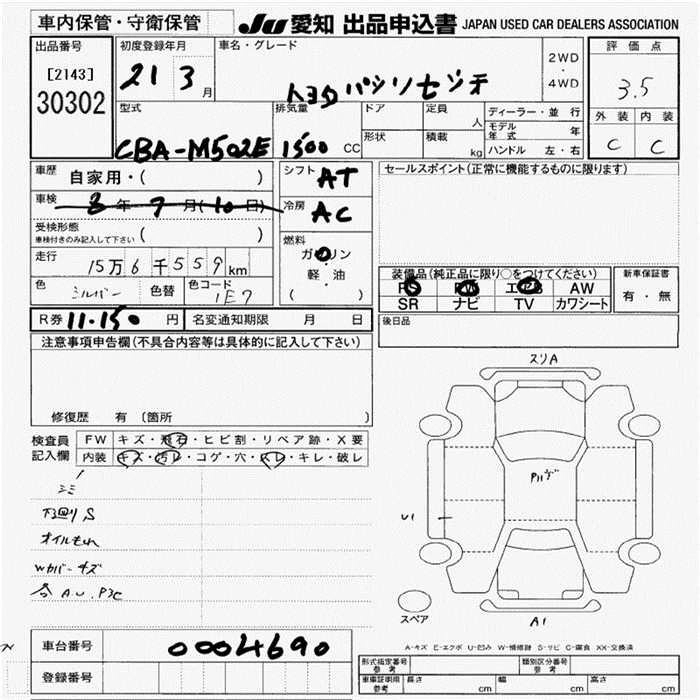 車内保管・守衛保管
JU 愛知 出品申込書 JAPAN USED CAR DEALERS ASSOCIATION
出品番号
[2143]
30302
初度登録年月
21 3 月
車名・グレード
トヨタ パッソセッテ
2WD
・
4WD
評価点
3.5
外装 内装
C C
型式
CBA-M502E
排気量
1500 CC
ドア
形状
定員
人
積載
kg
ディーラー・並行
モデル年式 年
ハンドル 左・右
車歴 自家用・( )
車検 3年 7月(10日)
受検形態
車検付きのみ記入して下さい ( )
走行
15万6千559km
色 シルバー 色替 色コード 1E7
シフト AT
冷房 AC
燃料
ガソリン
・
軽・油
( )
セールスポイント(正常に機能するものに限ります)
装備品(純正品に限り○をつけてください)
PS PW エアB AW
SR ナビ TV カワシート
新車保証書
有・無
後日品
R券 11.150 円 名変通知期限 月 日
注意事項申告欄(不具合内容等は具体的に記入して下さい)
修復歴 有 〔箇所 〕
検査員
記入欄
FW キズ・飛石・ヒビ割・リペア跡・X要
内装 キズ・汚レ・コゲ・穴・スレ・キレ・破レ
シミ
下廻りS
オイルもれ
Wカバーキズ
A.U.P3C
スリA
U1
A1
スペア
A-キズ E-エクボ U-凹み W-補修跡 S-サビ C-腐食 XX-交換済
車台番号 0004690
登録番号
形式指定番号
参考
類別区分番号
参考
車庫証明用
参考
長さ cm 幅 cm 高さ cm